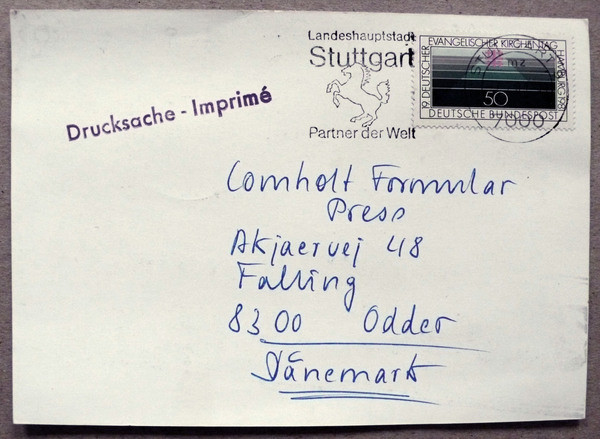 Landeshauptstadt
Stuttgart
Partner der Welt
19. DEUTSCHER EVANGELISCHER KIRCHENTAG HAMBURG 1981
50
DEUTSCHE BUNDESPOST
7000
Drucksache - Imprimé
Comholt Formular
Press
Akjaervej 48
Falling
8300 Odder
Dänemark